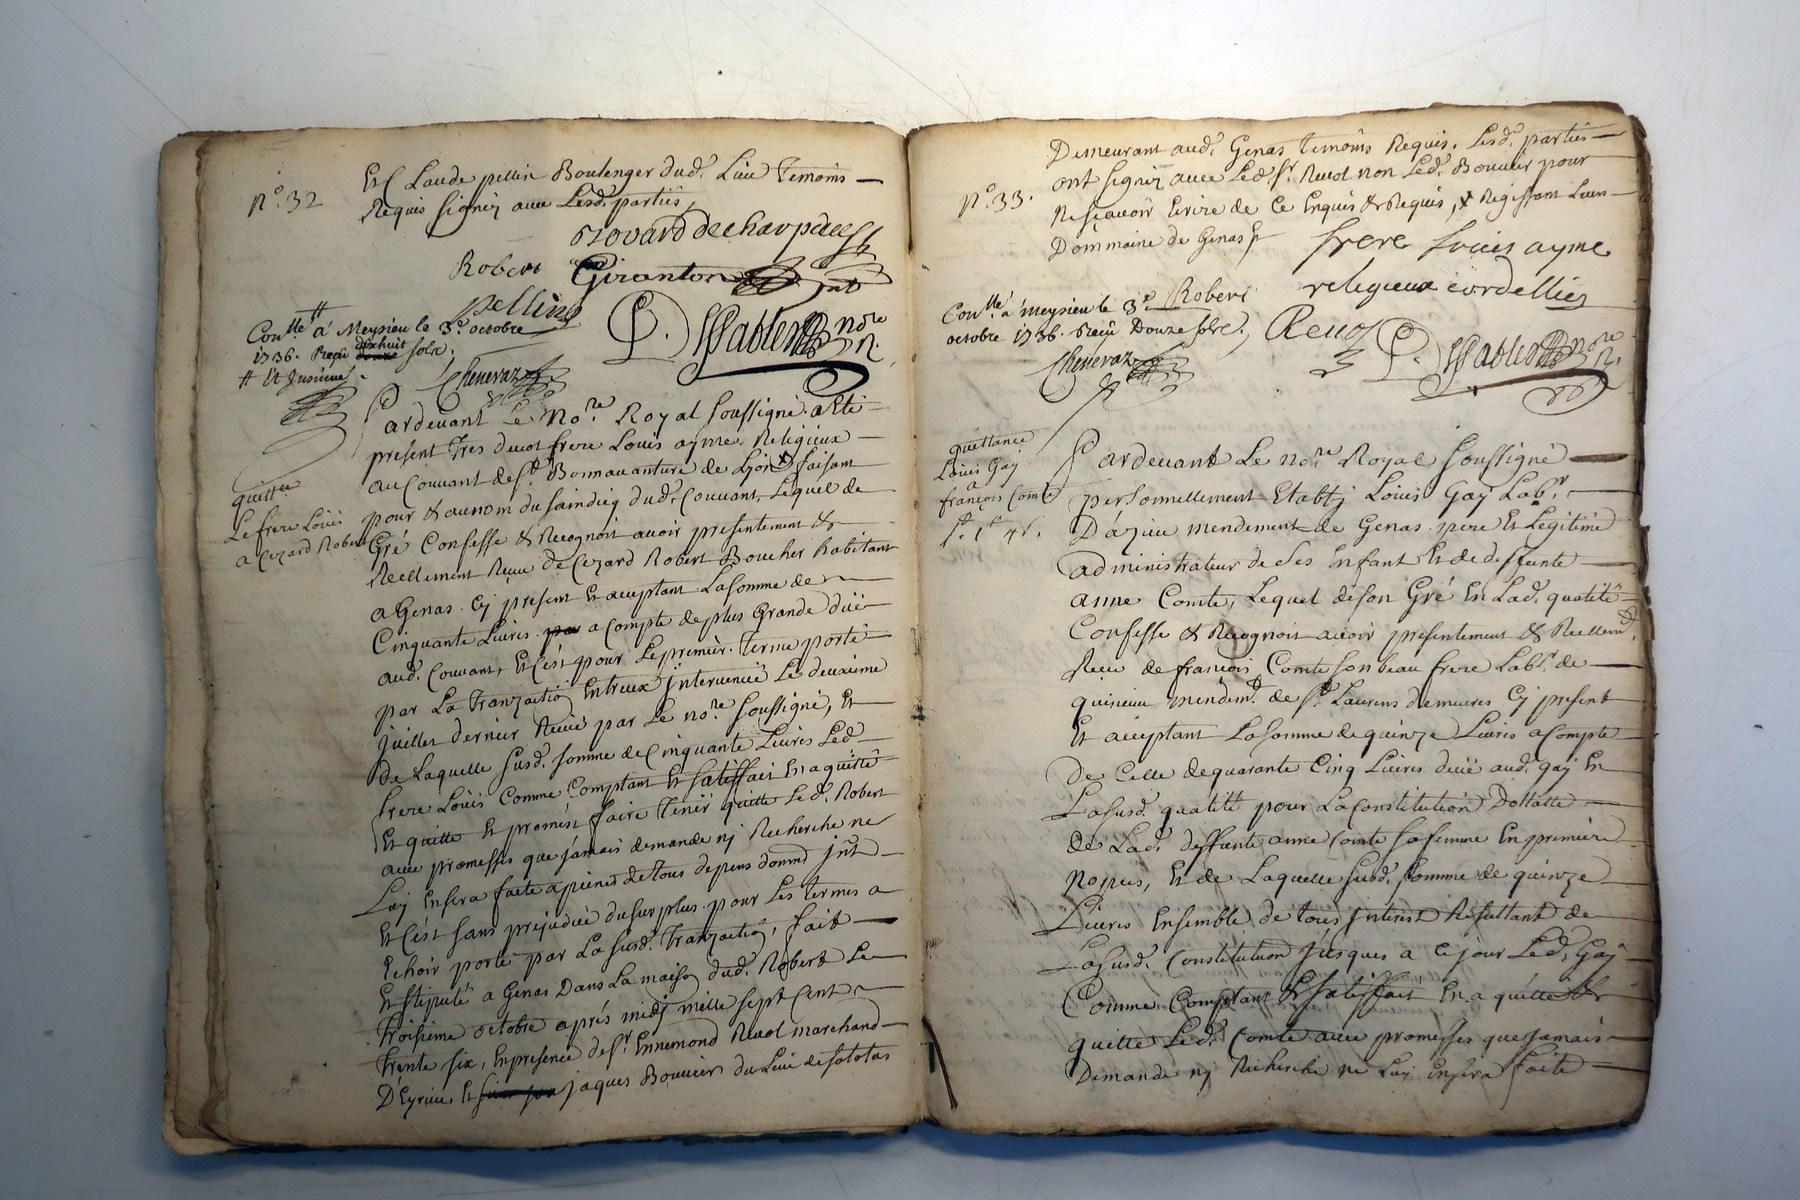 Et Claude pellin Boulenger dud. Lieu Temoins
Requis signez avec Lesd. parties
N.º 32
Robert Giranton
pellin
Con.lle a Meysieu le 3.e octobre
1736. Reçu dixhuit sols.
# Et Insinué.
Chenevaz
P. Sablier no.re
R.
Pardevant Le No.re Royal soussigné a Eté
present Tres devot frere Louis ayme Religieux
au Couvant de s.t Bonnavanture de Lyon faisant
pour & au nom du saindicq dud. Couvant, Lequel de
Gré Confesse & Recognoit avoir presentement &
Reellement Reçue de Cezard Robert Boucher habitant
a Genas. Cy present Et acceptant La somme de
Cinquante Livres a compte de plus Grande düe
aud. Couvant, Et C'est pour Le premier. Terme porté
par La Tranzaction Entreux Intervenüe Le deuxième
Juillet dernier Reçüe par Le no.re soussigné, Et
de Laquelle susd. somme de Cinquante Livres Led.
frere Louis Comme Comptant Et satisffait En a quitté
Et quitte Et promest faire Tenir quitte Led. Robert
avec promesses que jamais demande ny Recherche ne
Luy En sera faite a peines de tous depens domm.d jnt.
Et C'est sans prejudice du surplus pour Les termes a
Echoir porté par La susd. Tranzaction, fait
Et stipulé a Genas Dans La maison dud. Robert Le
Troisième octobre aprés midj mille sept Cent
Trente six, En presence de s.r Ennemond Revol marchand
D'Eyrieu, Et jaques Bouvier du Lieu de satolas
quitt.ce
Le frere Louis
a Cezard Robert
Demeurant aud. Genas Temoins Requis. Lesd. parties
ont signez avec Led. s.r Revol non Led. Bouvier pour
ne sçavoir Ecrire de Ce Enquis & Requis,
Dommaine de Genas
N.º 33.
frere Louis ayme
religieux cordellier
Robert
Con.lle a Meysieu le 3.e
octobre 1736. Reçu Douze sols.
Revol
Chenevaz
P. Sablier no.re
R.
quittance
Louis Gay
a
françois Comte
Pardevant Le no.re Royal soussigné
personnellement Etably Louis Gay Lab.r
D'azieu mendement de Genas pere Et Legitime
administrateur de ses Enfant Et de deffunte
anne Comte, Lequel de son Gré En Lad. qualité
Confesse & Recognoit avoir presentement & Reellem.t
Reçu de françois Comte son beau frere Lab.r de
quinieu mendem.t de s.t Laurens demeures Cy present
Et acceptant La somme de quinze Livres a compte
de Celle de quarante Cinq Livres düe aud. gay En
La susd. qualité pour La Constitution Dottalle
de Lad. deffunte anne Comte sa femme En premiere
Nopces, Et de Laquelle susd. somme de quinze
Livres Ensemble de tous Interest Resultant de
La susd. Constitution jusques a ce jour Led. Gay
Comme Comptant Et satisffait En a quitté &
quitte Led. Comte avec promesses que jamais
Demande ny Recherche ne Luy En sera faite